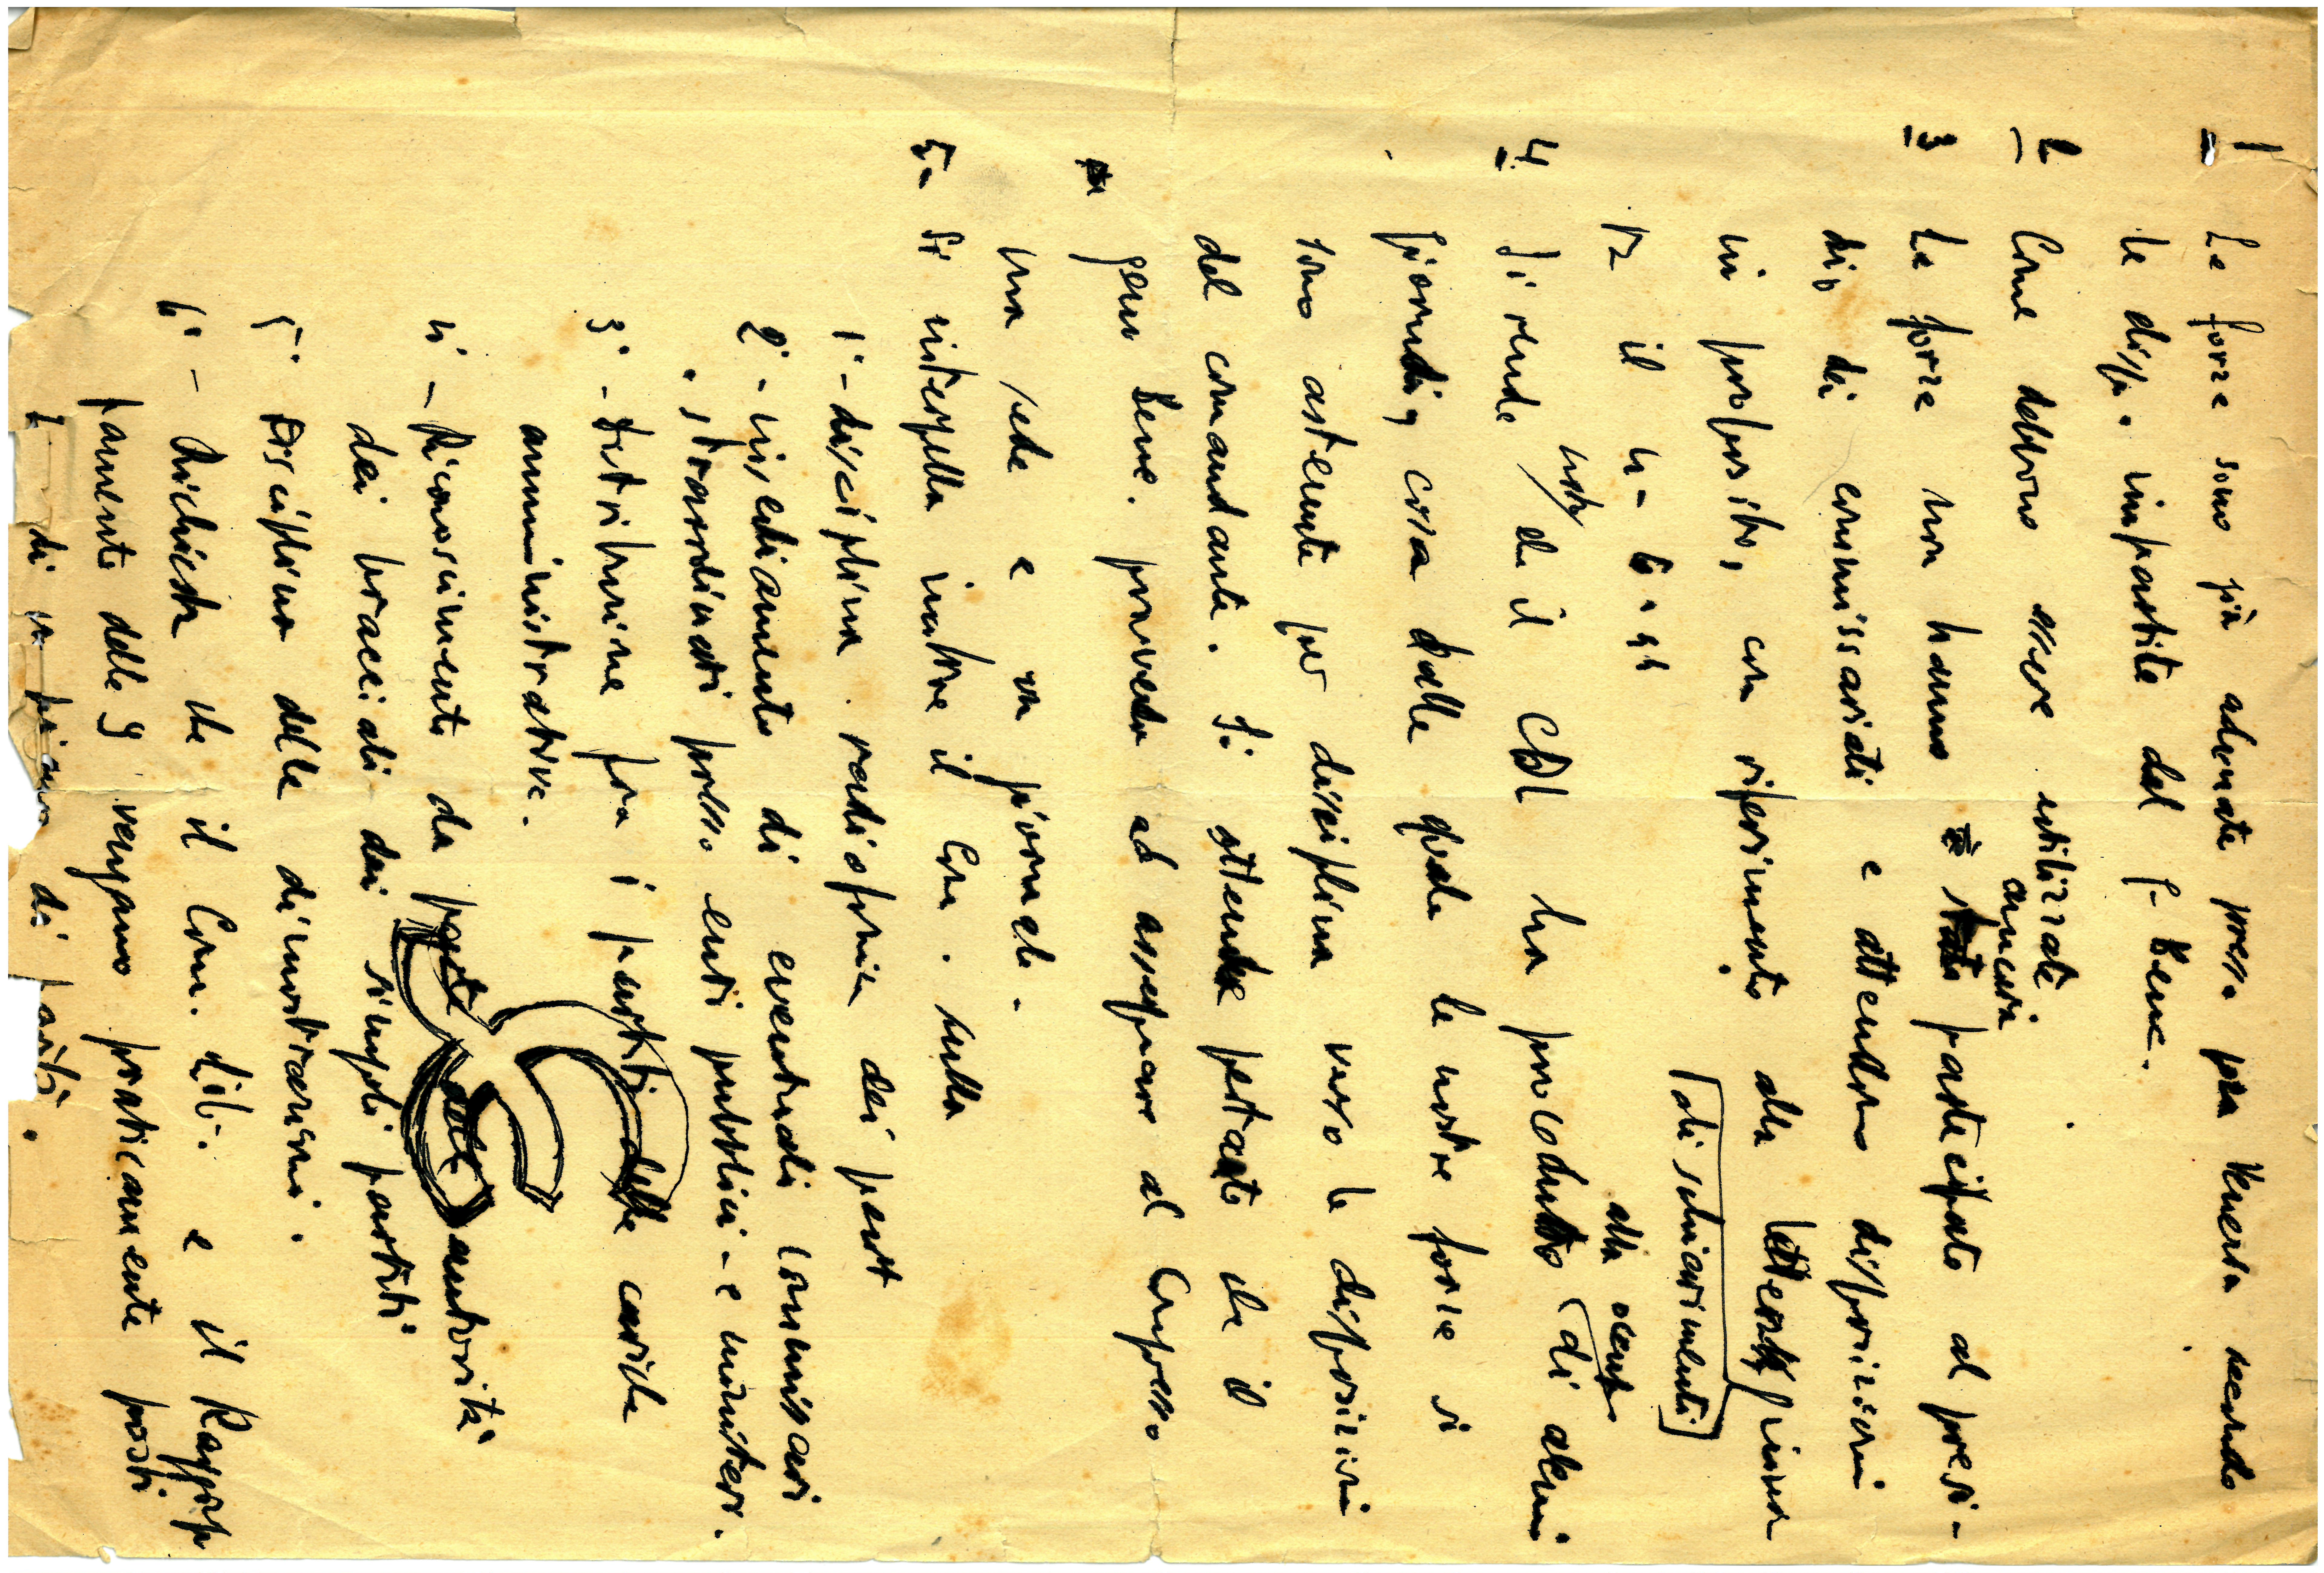 1 Le forze sono già adunate presso piazza Venezia secondo
le disp. impartite dal g. Bene.
2 Come debbono essere utilizzate
ancora
3 Le forze non hanno partecipato al presi-
dio dei commissariati e attendono disposizioni
in proposito, con riferimento alla lettera
di schiarimenti
il 4-6-44
alla
4 Si rende noto che il CDL ha proceduto di alcuni
giornali, cosa dalla quale le nostre forze si
sono astenute per disciplina verso le disposizioni
del comandante. Si attende pertanto che il
gen. Bene. provveda ad assegnare al Compresso
una sede e un giornale.
5- Si interpella inoltre il Com. sulla
1° - disciplina radiofonia dei part
2° - insediamento di eventuali commissari
straordinari presso enti pubblici - e ministeri.
3° - Distribuzione fra i partiti delle cariche
amministrative.
4° - Riconoscimento da parte delle autorità
dei bracciali dei singoli partiti
5° Disciplina delle dimostrazioni.
6° - Richiesta che il Com. dib. e il Raggrup
pamento delle 9 vengano praticamente posti
di parità.